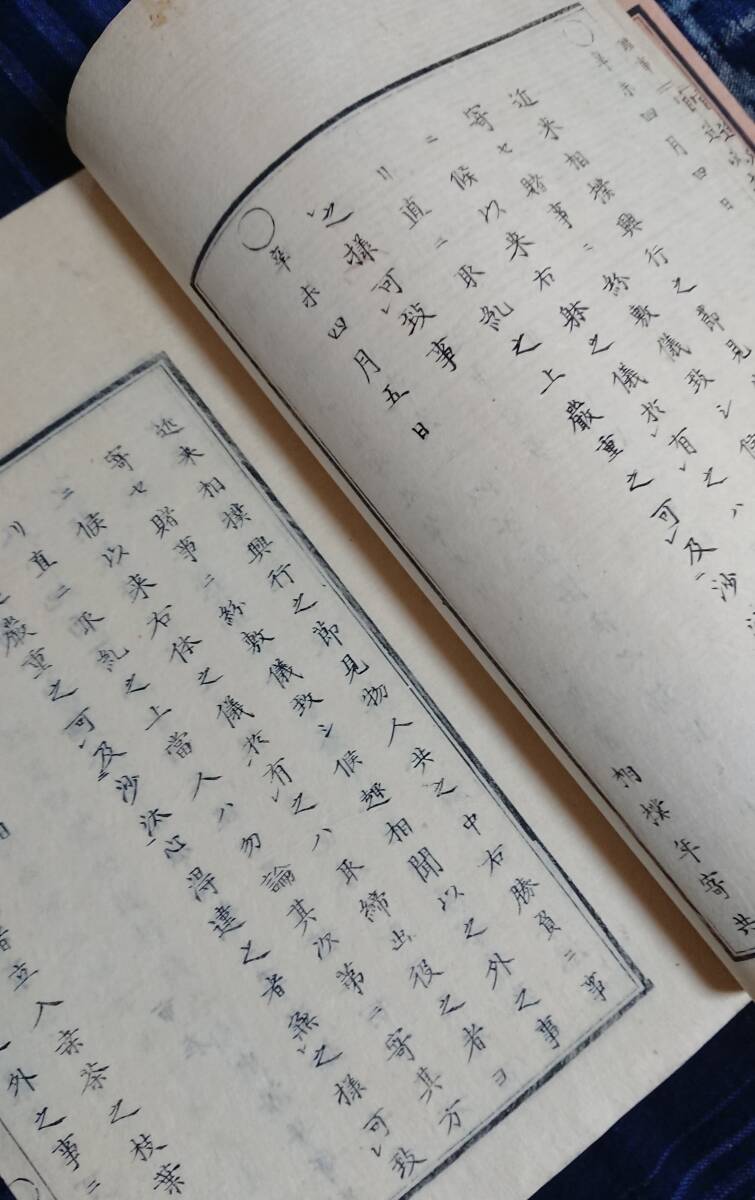 辛未四月四日
相撲年寄共
近来相撲興行之節見
寄セ賭事ニ紛敷儀致シ候
ニ候以来右躰之儀於有レ之ハ
リ直ニ取糺之上嚴重之可レ及ニ沙
之様可レ致事
辛未四月五日
近来相撲興行之節見物人共之中右勝負ニ事
寄セ賭事ニ紛敷儀致シ候趣相聞以之外之事
ニ候以来右体之儀於有レ之ハ取締出役之者ヨ
リ直ニ取糺之上當人ハ勿論其次第ニ寄其方
嚴重之可レ及ニ沙汰心得違之者無レ之様可レ致
立入茶之枝葉
外之事ニ